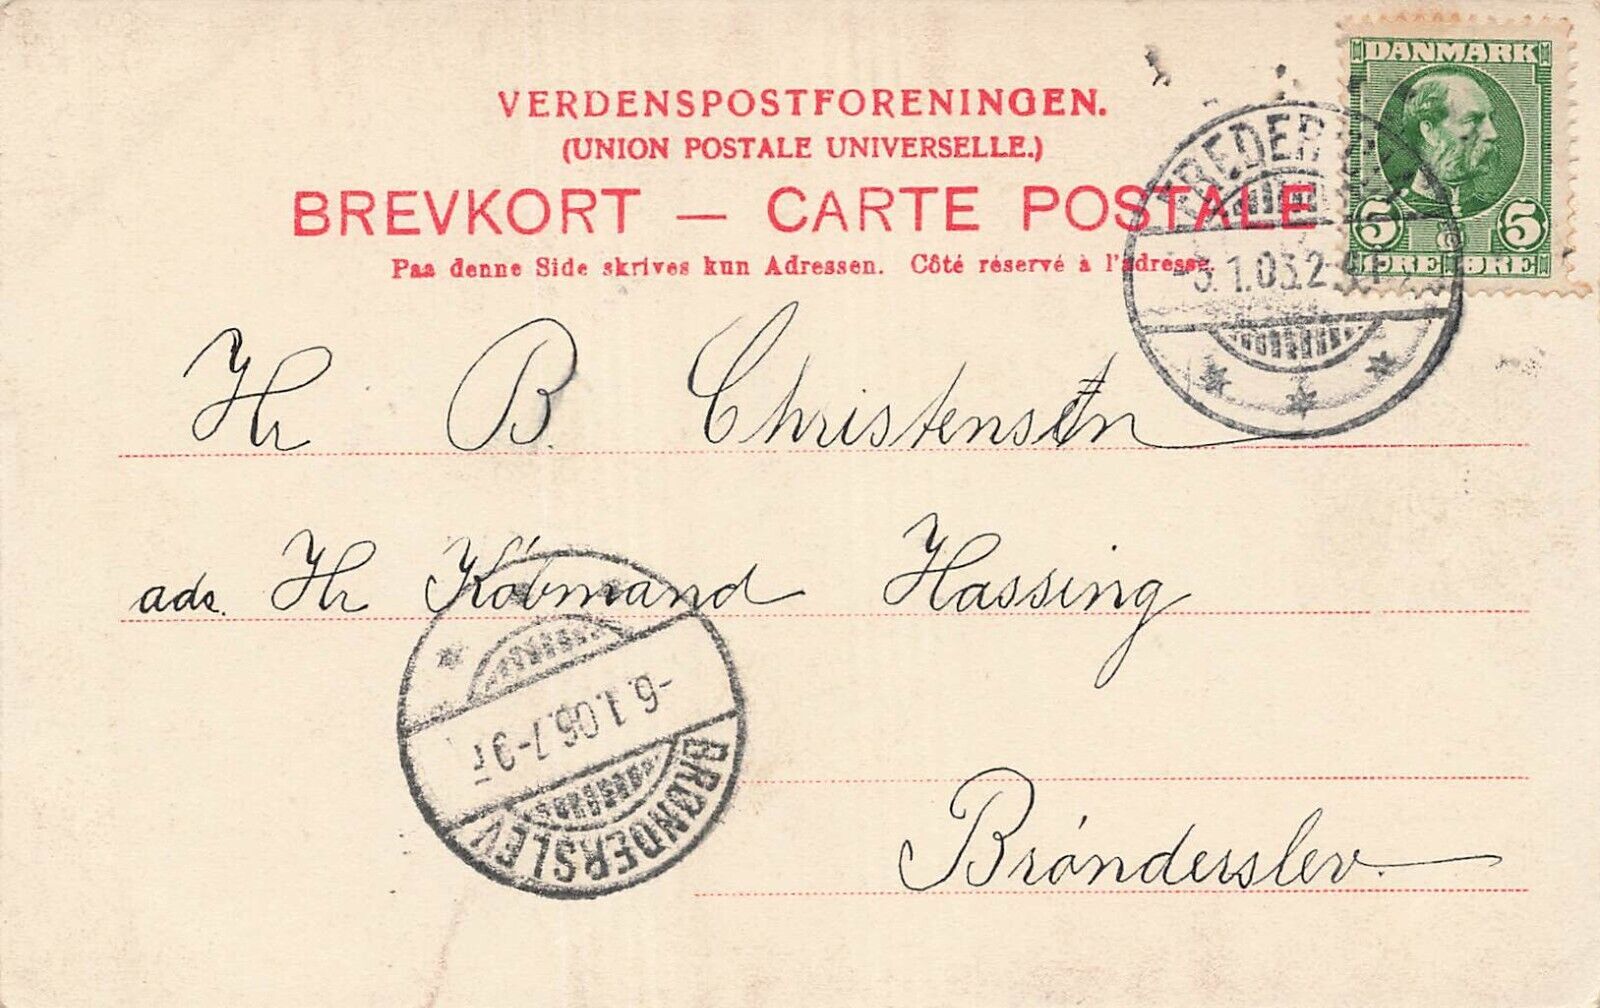 VERDENSPOSTFORENINGEN.
(UNION POSTALE UNIVERSELLE.)
BREVKORT — CARTE POSTALE
Paa denne Side skrives kun Adressen. Côté réservé à l'adresse.
DANMARK
5 5
ØRE ØRE
Hr B. Christensen
adr. Hr Købmand Hassing
Brønderslev.
-6.1.06.7-9 F
BRØNDERSLEV